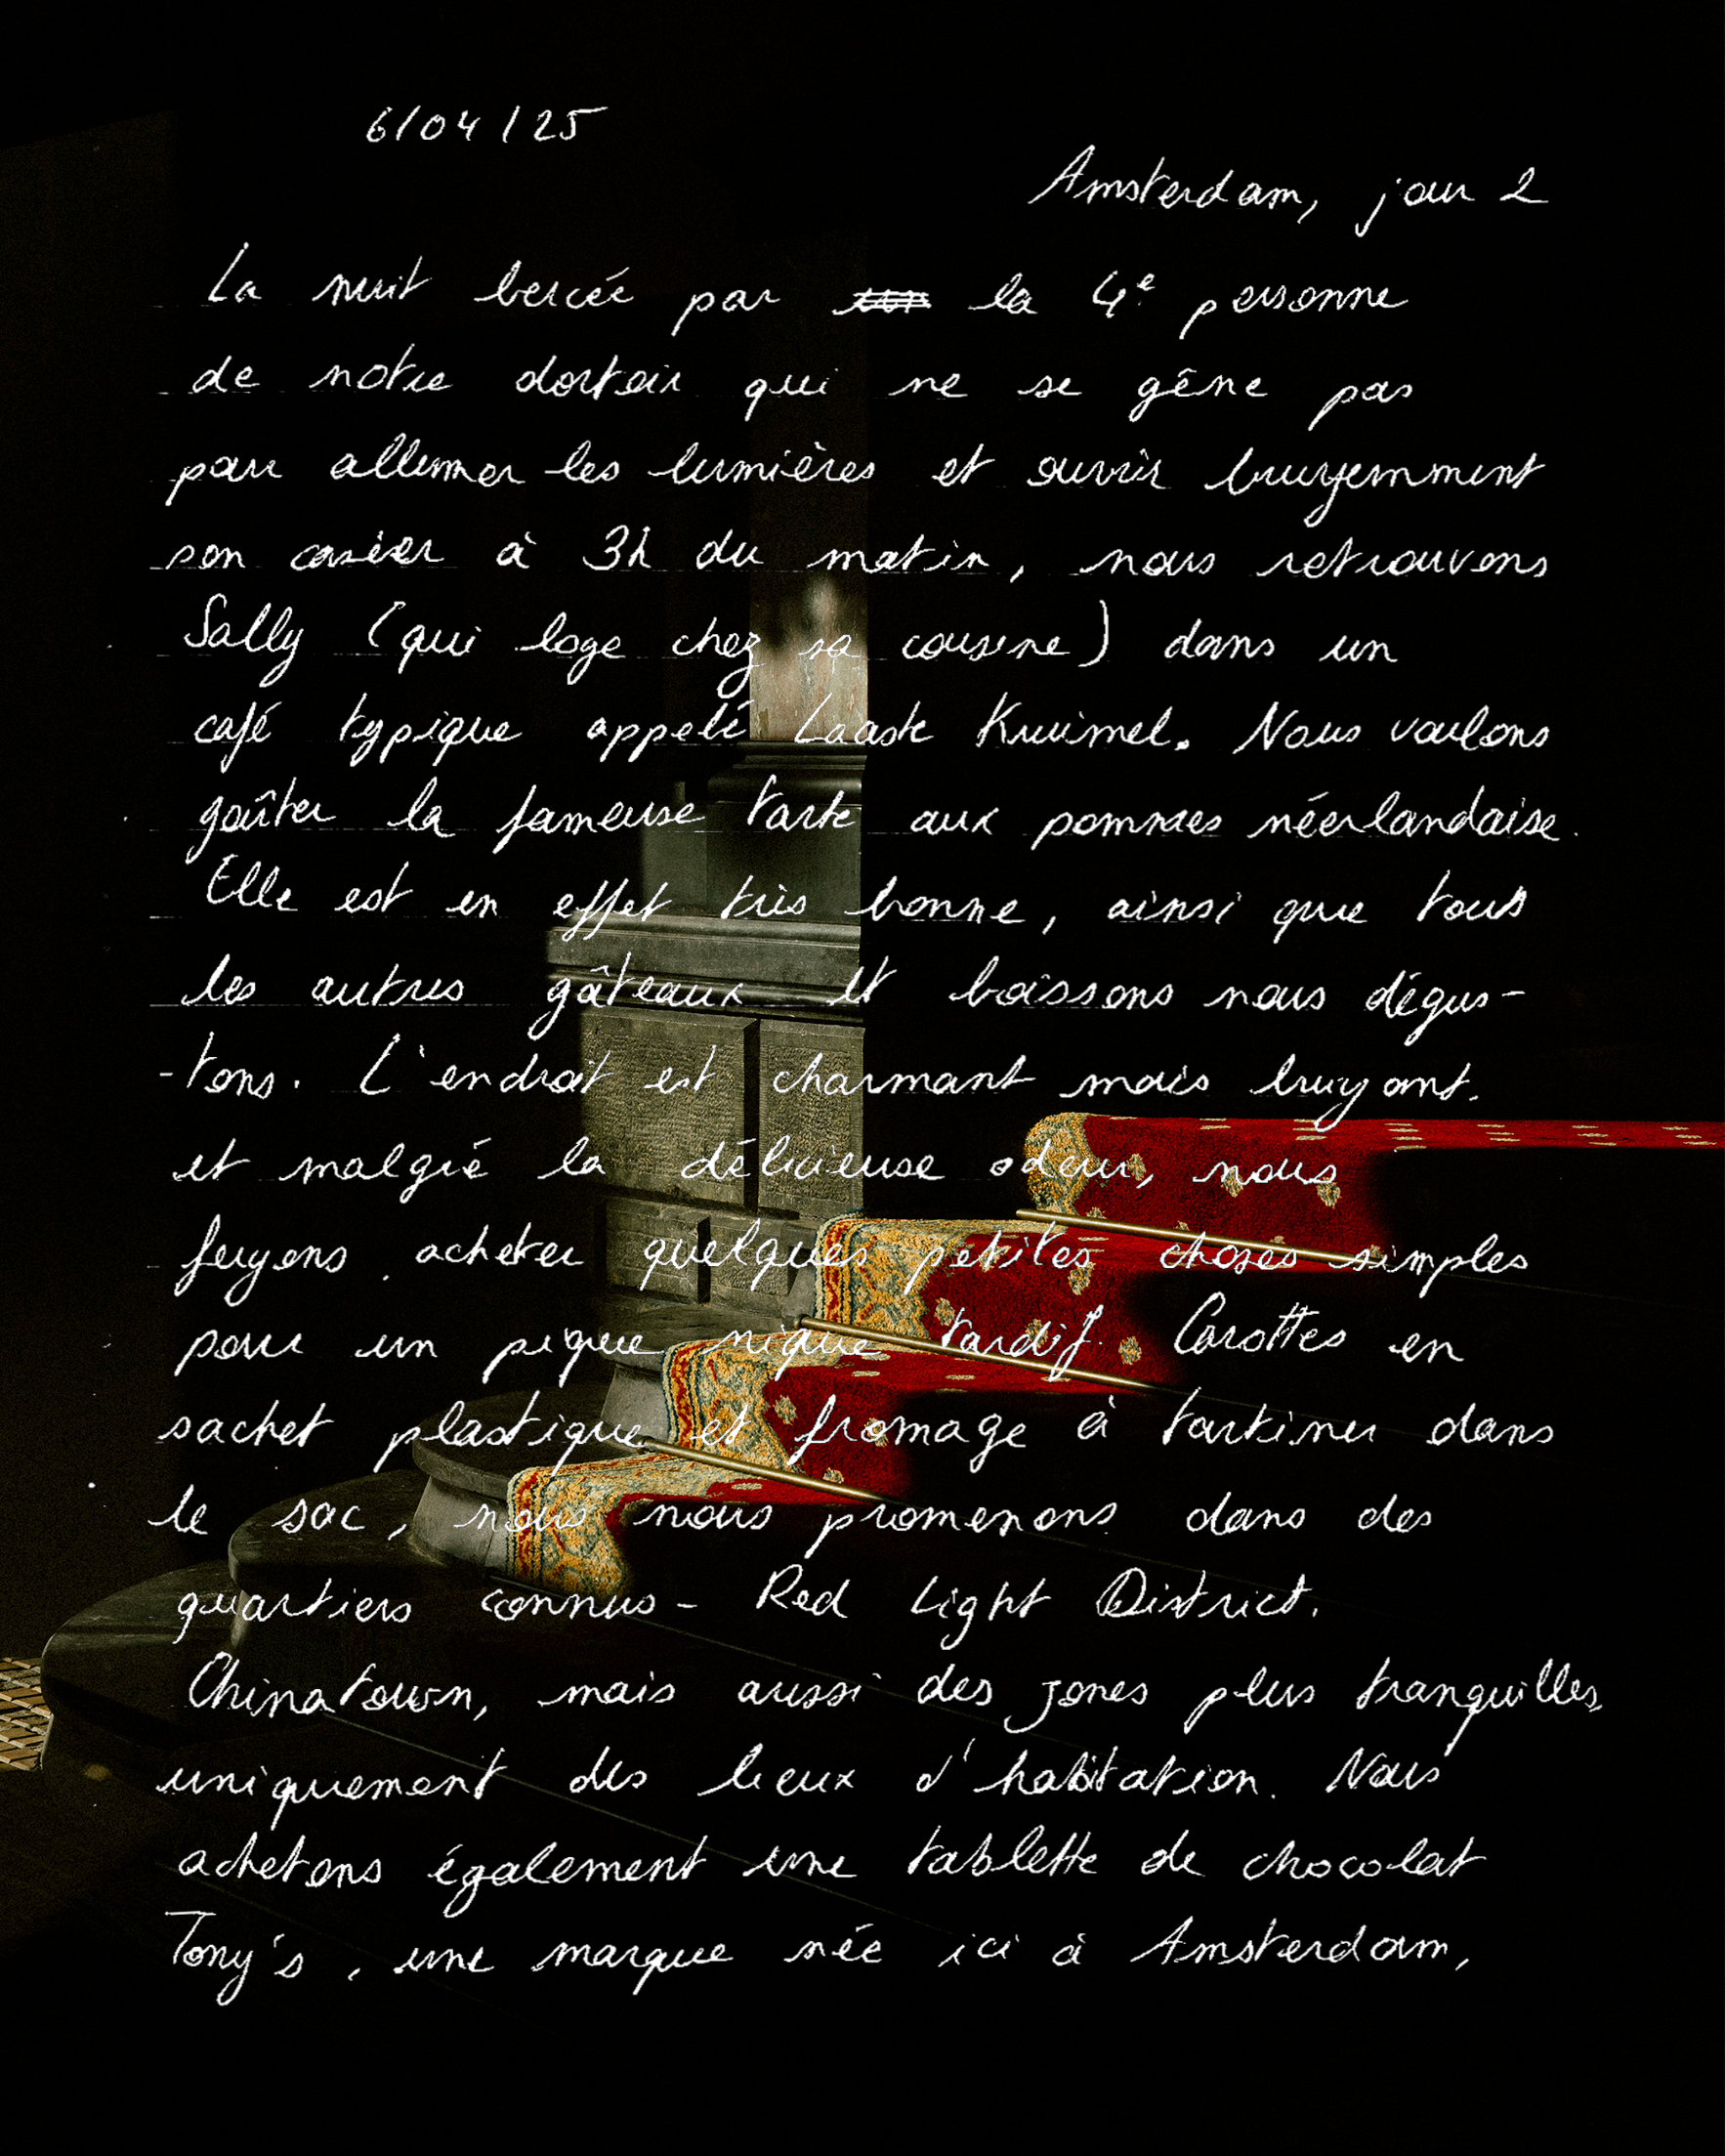 6/04/25
Amsterdam, jour 2
La nuit bercée par la 4e personne
de notre dortoir qui ne se gêne pas
pour allumer les lumières et ouvrir bruyemment
son casier à 3h du matin, nous retrouvons
Sally (qui loge chez sa cousine) dans un
café typique appelé Laaste Kruimel. Nous voulons
goûter la fameuse tarte aux pommes néerlandaise.
Elle est en effet très bonne, ainsi que tous
les autres gâteaux et boissons nous dégus-
-tons. L'endroit est charmant mais bruyant.
et malgré la délicieuse odeur, nous
fuyons acheter quelques petites choses simples
pour un pique nique tardif. Carottes en
sachet plastique et fromage à tartiner dans
le sac, nous nous promenons dans des
quartiers connus - Red Light District.
Chinatown, mais aussi des zones plus tranquilles,
uniquement des lieux d'habitation. Nous
achetons également une tablette de chocolat
Tony's, une marque née ici à Amsterdam,